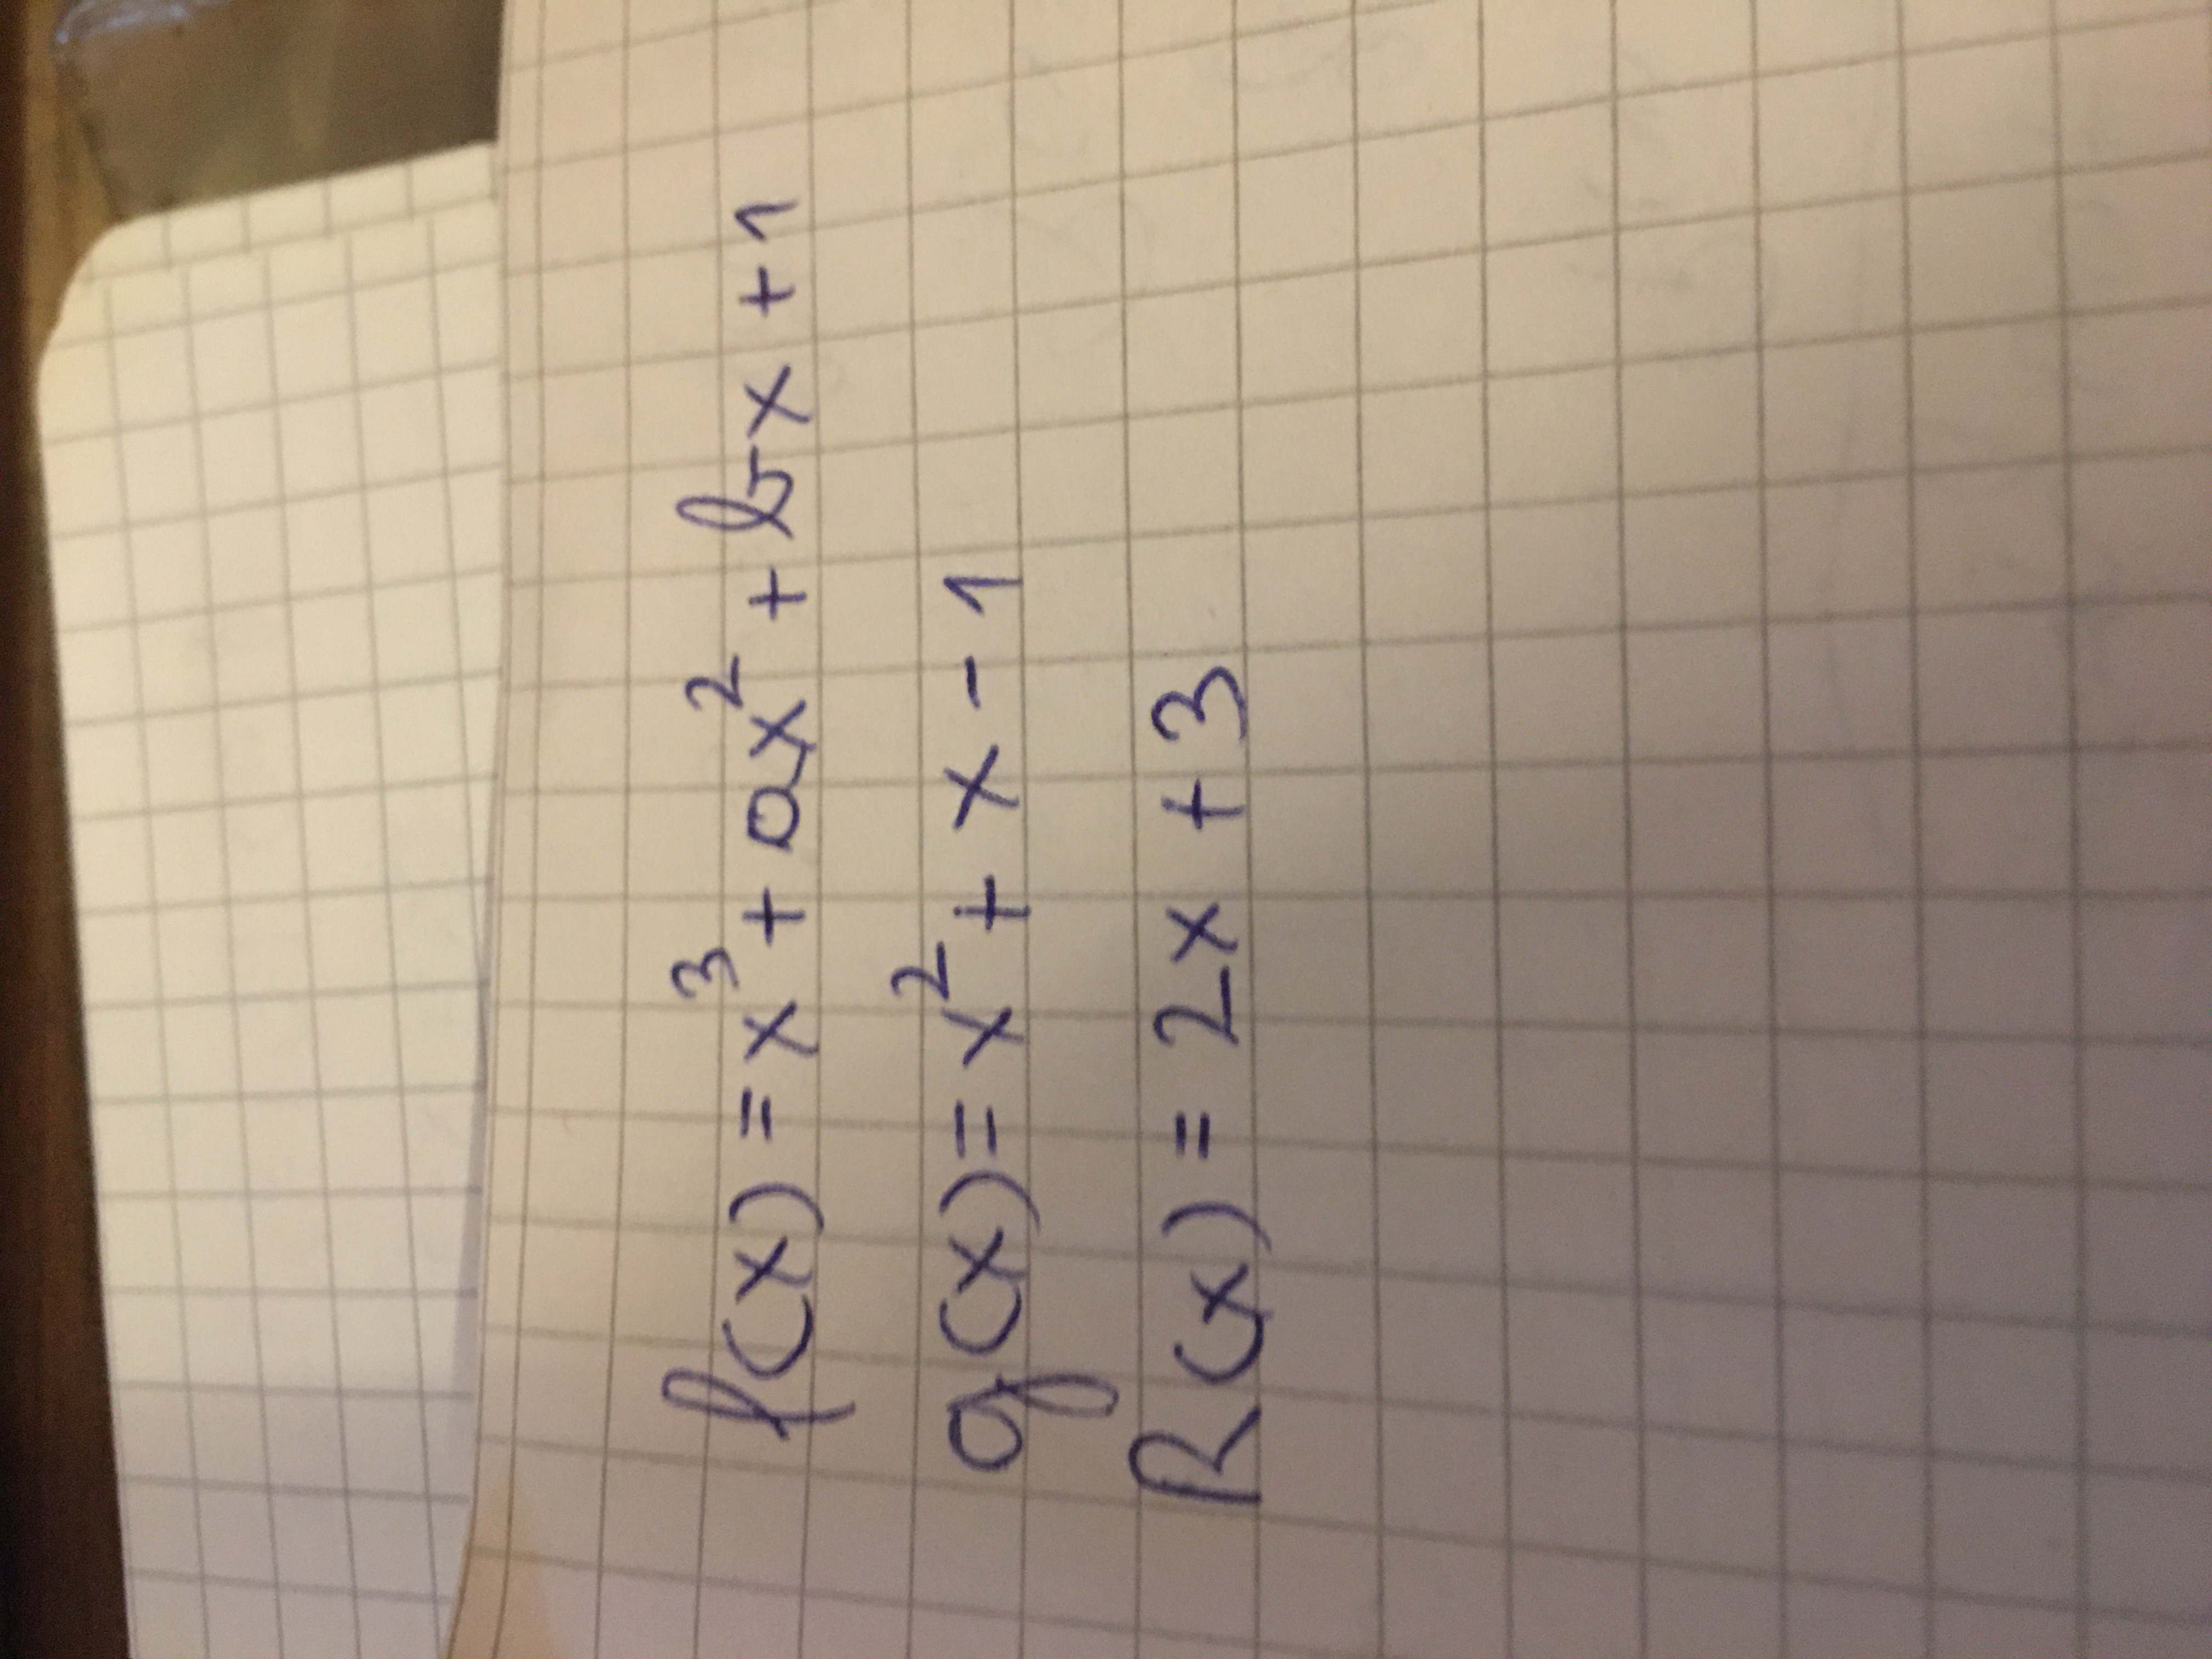 f(x) = x³ + ax² + bx + 1
g(x) = x² + x - 1
R(x) = 2x + 3